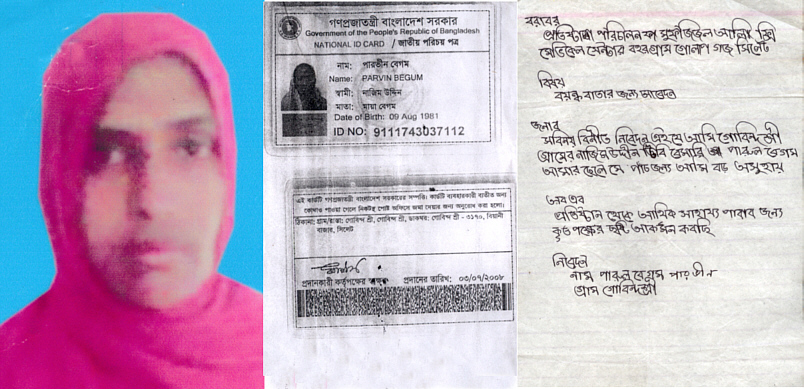 গণপ্রজাতন্ত্রী বাংলাদেশ সরকার
Government of the People's Republic of Bangladesh
NATIONAL ID CARD / জাতীয় পরিচয় পত্র
নাম: পারভীন বেগম
Name: PARVIN BEGUM
স্বামী: নাজিম উদ্দিন
মাতা: মায়া বেগম
Date of Birth: 09 Aug 1981
ID NO: 9111743037112
এই কার্ডটি গণপ্রজাতন্ত্রী বাংলাদেশ সরকারের সম্পত্তি। কার্ডটি ব্যবহারকারী ব্যতীত অন্য
কোথাও পাওয়া গেলে নিকটস্থ পোস্ট অফিসে জমা দেবার জন্য অনুরোধ করা হলো।
ঠিকানা: গ্রাম/রাস্তা: গোবিন্দ শ্রী, গোবিন্দ শ্রী, ডাকঘর: গোবিন্দ শ্রী - ৩১৭০, বিয়ানী
বাজার, সিলেট
প্রদানকারী কর্তৃপক্ষের স্বাক্ষর প্রদানের তারিখ: ০৩/০৭/২০০৮
বরাবর
প্রতিষ্ঠাতা পরিচালক
সিলেট
বিষয়
বয়স্ক বাতার জন্য আবেদন
জনাব
সবিনয় বিনীত নিবেদন এই যে আমি গোবিন্দশ্রী
গ্রামের নাজিম উদ্দীন
আমি বড় অসহায়
অতএব
প্রতিষ্ঠান থেকে আর্থিক সাহায্য পাবার জন্য
আকর্ষন করছি
নিবেদন
নাম
গ্রাম গোবিন্দশ্রী